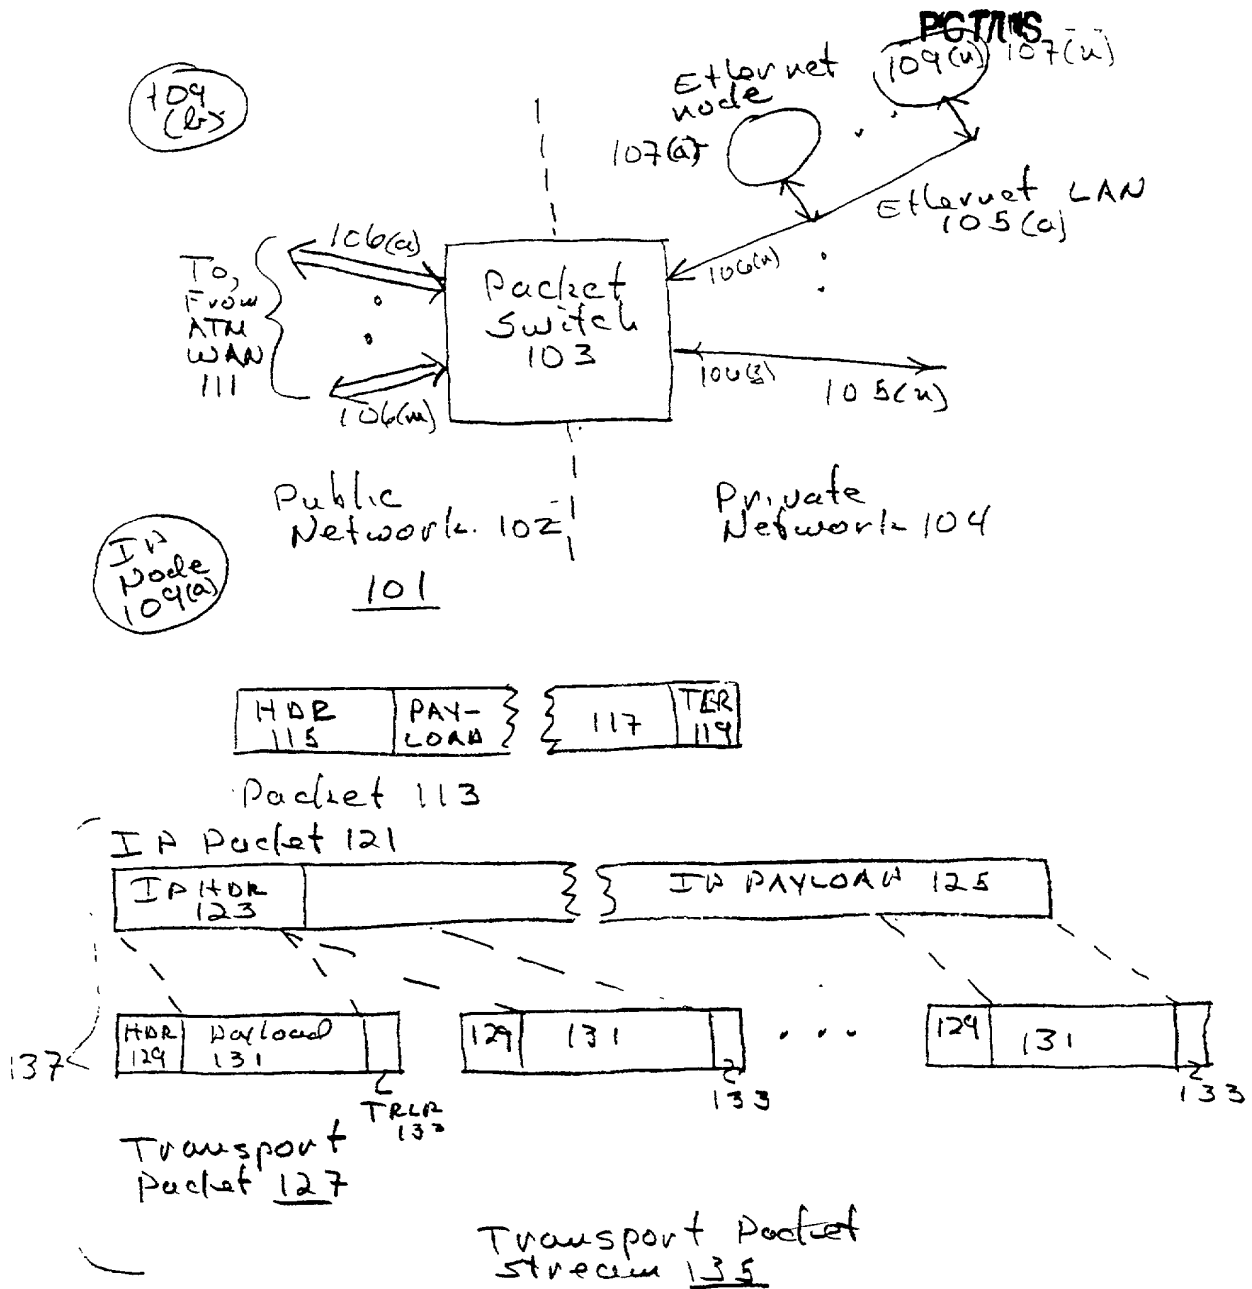 109(n) 107(n)
Ethernet
node
107(a)
109
(b)
Ethernet LAN
105(a)
106(a)
106(n)
To,
From
ATM
WAN
111
Packet
Switch
103
106(m)
105(n)
Public
Network 102
Private
Network 104
IP
Node
109(a)
101
HDR
115
PAY-
LOAD
117
TLR
119
Packet 113
IP Packet 121
IP HDR
123
IP PAYLOAD 125
HDR
129
Payload
131
129
131
129
131
137
TRLR
133
133
133
Transport
Packet 127
Transport Packet
Stream 135